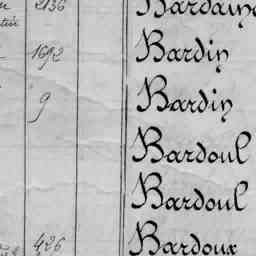 2136
1692 Bardin
9 Bardin
Bardoul
Bardoul
426 Bardoux